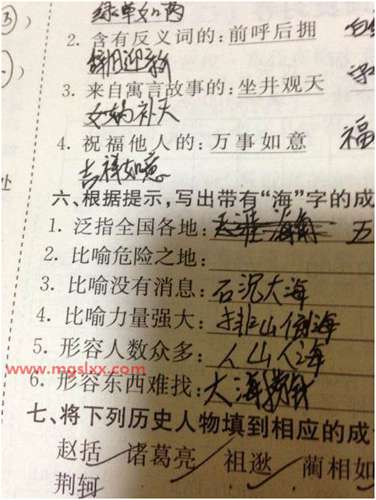 绿草如茵
2. 含有反义词的：前呼后拥
辞旧迎新
3. 来自寓言故事的：坐井观天
女娲补天
4. 祝福他人的：万事如意 福
吉祥如意
处
六、根据提示，写出带有“海”字的成
1. 泛指全国各地：天涯海角 五
2. 比喻危险之地：
3. 比喻没有消息：石沉大海
4. 比喻力量强大：排山倒海
5. 形容人数众多：人山人海
www.mgslxx.com
6. 形容东西难找：大海捞针
七、将下列历史人物填到相应的成
赵括 诸葛亮 祖逖 蔺相如
荆轲